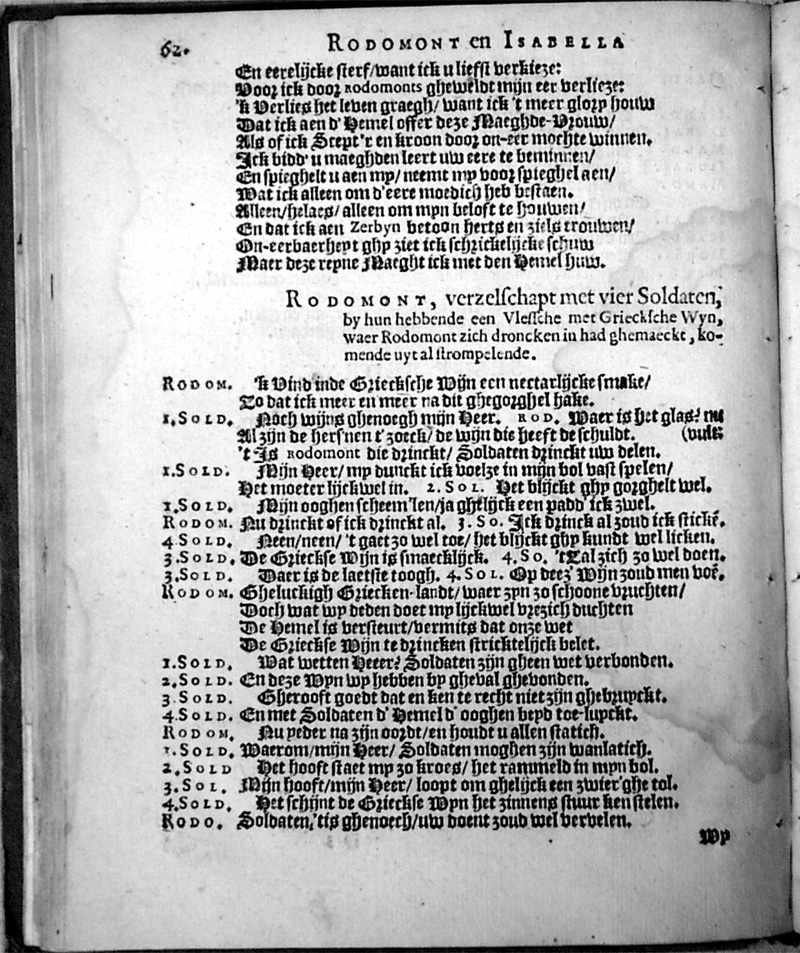 62. RODOMONT en ISABELLA
En eerelijcke sterf/want ick u liefst verkieze:
Voor ick door Rodomonts gheweldt mijn eer verlieze:
'k Verlies het leven graegh/ want ick 't meer glory houw
Dat ick aen d' Hemel offer deze Maeghde-Vrouw/
Als of ick Scept'r en kroon door on-eer mochte winnen.
Ick bidd' u maeghden leert uw eere te beminnen/
En spieghelt u aen my/ neemt my voor spieghel aen/
Wat ick alleen om d'eere moedich heb bestaen.
Alleen/helaes/ alleen om myn beloft te houwen/
En dat ick aen Zerbyn betoon herts en ziels trouwen/
On-eerbaerheyt ghy ziet ick schrickelijcke schuw
Maer deze reyne Maeght ick met den Hemel huw.
RODOMONT, verzelschapt met vier Soldaten,
by hun hebbende een Vlessche met Grieckſche Wyn,
waer Rodomont zich droncken in had ghemaeckt, ko-
mende uyt al strompelende.
RODOM. 'k Vind inde Griecksche Wijn een nectarlijcke smake/
Zo dat ick meer en meer na dit ghegorghel hake.
1.SOLD. Noch wijns ghenoegh mijn Heer. ROD. Waer is het glas? nu
Al zijn de hers'nen t' zoeck/ de wijn die heeft de schuldt. (vult
't Is Rodomont die drinckt/ Soldaten drinckt uw delen.
1.SOLD. Mijn Heer/ my dunckt ick voelze in mijn bol vast spelen/
Het moeter lijckwel in. 2.SOL. Het blijckt ghy gorghelt wel.
1.SOLD. Mijn ooghen scheem'len/ja ghelijck een padd' ick zwel.
RODOM. Nu drinckt of ick drinckt al. 3.SO. Ick drinck al zoud ick stickē.
4 SOLD. Neen/neen/ 't gaet zo wel toe/ het blijckt ghy kundt wel licken.
3.SOLD. De Grieckse Wijn is smaecklijck. 4.SO. 't Zal zich zo wel doen.
3.SOLD. Daer is de laetste toogh. 4.SOL. Op deez' Wijn zoud men voē.
RODOM. Gheluckigh Griecken-landt/ waer zyn zo schoone vruchten/
Doch wat wy deden doet my lijckwel vrezich duchten
De Hemel is versteurt/ vermits dat onze wet
De Grieckse Wijn te drincken stricktelijck belet.
1.SOLD. Wat wetten Heeer? Soldaten zijn gheen wet verbonden.
2.SOLD. En deze Wyn wy hebben by gheval ghevonden.
3 SOLD. Gherooft goedt dat en ken te recht niet zijn ghebruyckt.
4.SOLD. En met Soldaten d' Hemel d' ooghen beyd toe-luyckt.
RODOM. Nu yeder na zijn oordt/ en houdt u allen statich.
1.SOLD. Waerom/mijn Heer/ Soldaten moghen zijn wanlatich.
2.SOLD Het hooft staet my zo kroes/ het rammeld in myn bol.
3.SOL. Mijn hooft/mijn Heer/ loopt om ghelijck een zwier'ghe tol.
4.SOLD. Het schijnt de Grieckse Wyn het zinnens stuur ken stelen.
RODO. Soldaten/'tis ghenoech/uw doent zoud wel vervelen.
Wy